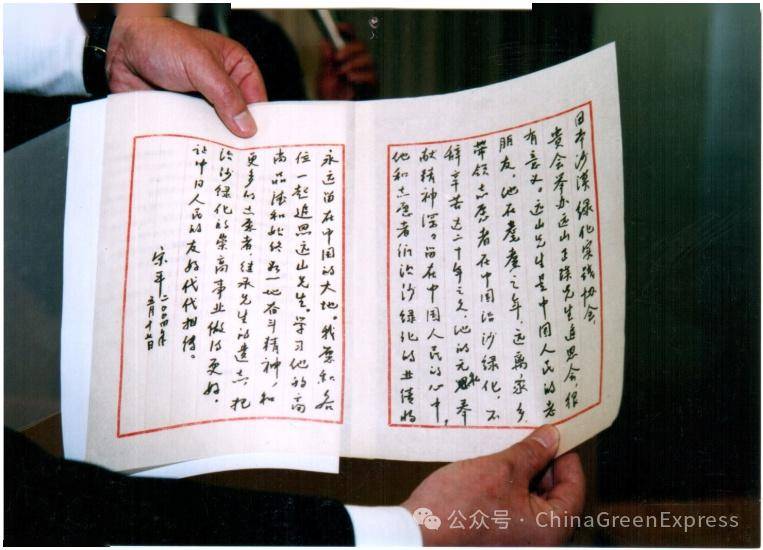 日本沙漠绿化实践协会:
贵会举办远山正瑛先生追思会,很
有意义。远山先生是中国人民的老
朋友,他在耄耋之年,远离家乡,
带领志愿者在中国治沙绿化,不
辞辛苦达二十年之久。他的无私奉
献精神深深留在中国人民的心中,
他和志愿者们治沙绿化的业绩将
永远留在中国的大地。我愿和各
位一起追思远山先生。学习他的高
尚品德和始终如一地奋斗精神,和
更多的志愿者,继承先生的遗志,把
治沙绿化的崇高事业做得更好,
让中日人民的友好代代相传。
宋平 二〇〇四年
五月十七日
公众号·ChinaGreenExpress